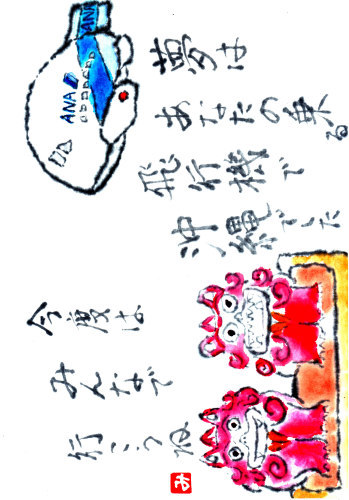 ANA
ANA
夢は
あなたの乗る
飛行機で
沖縄でした
今度は
みんなで
行こうね